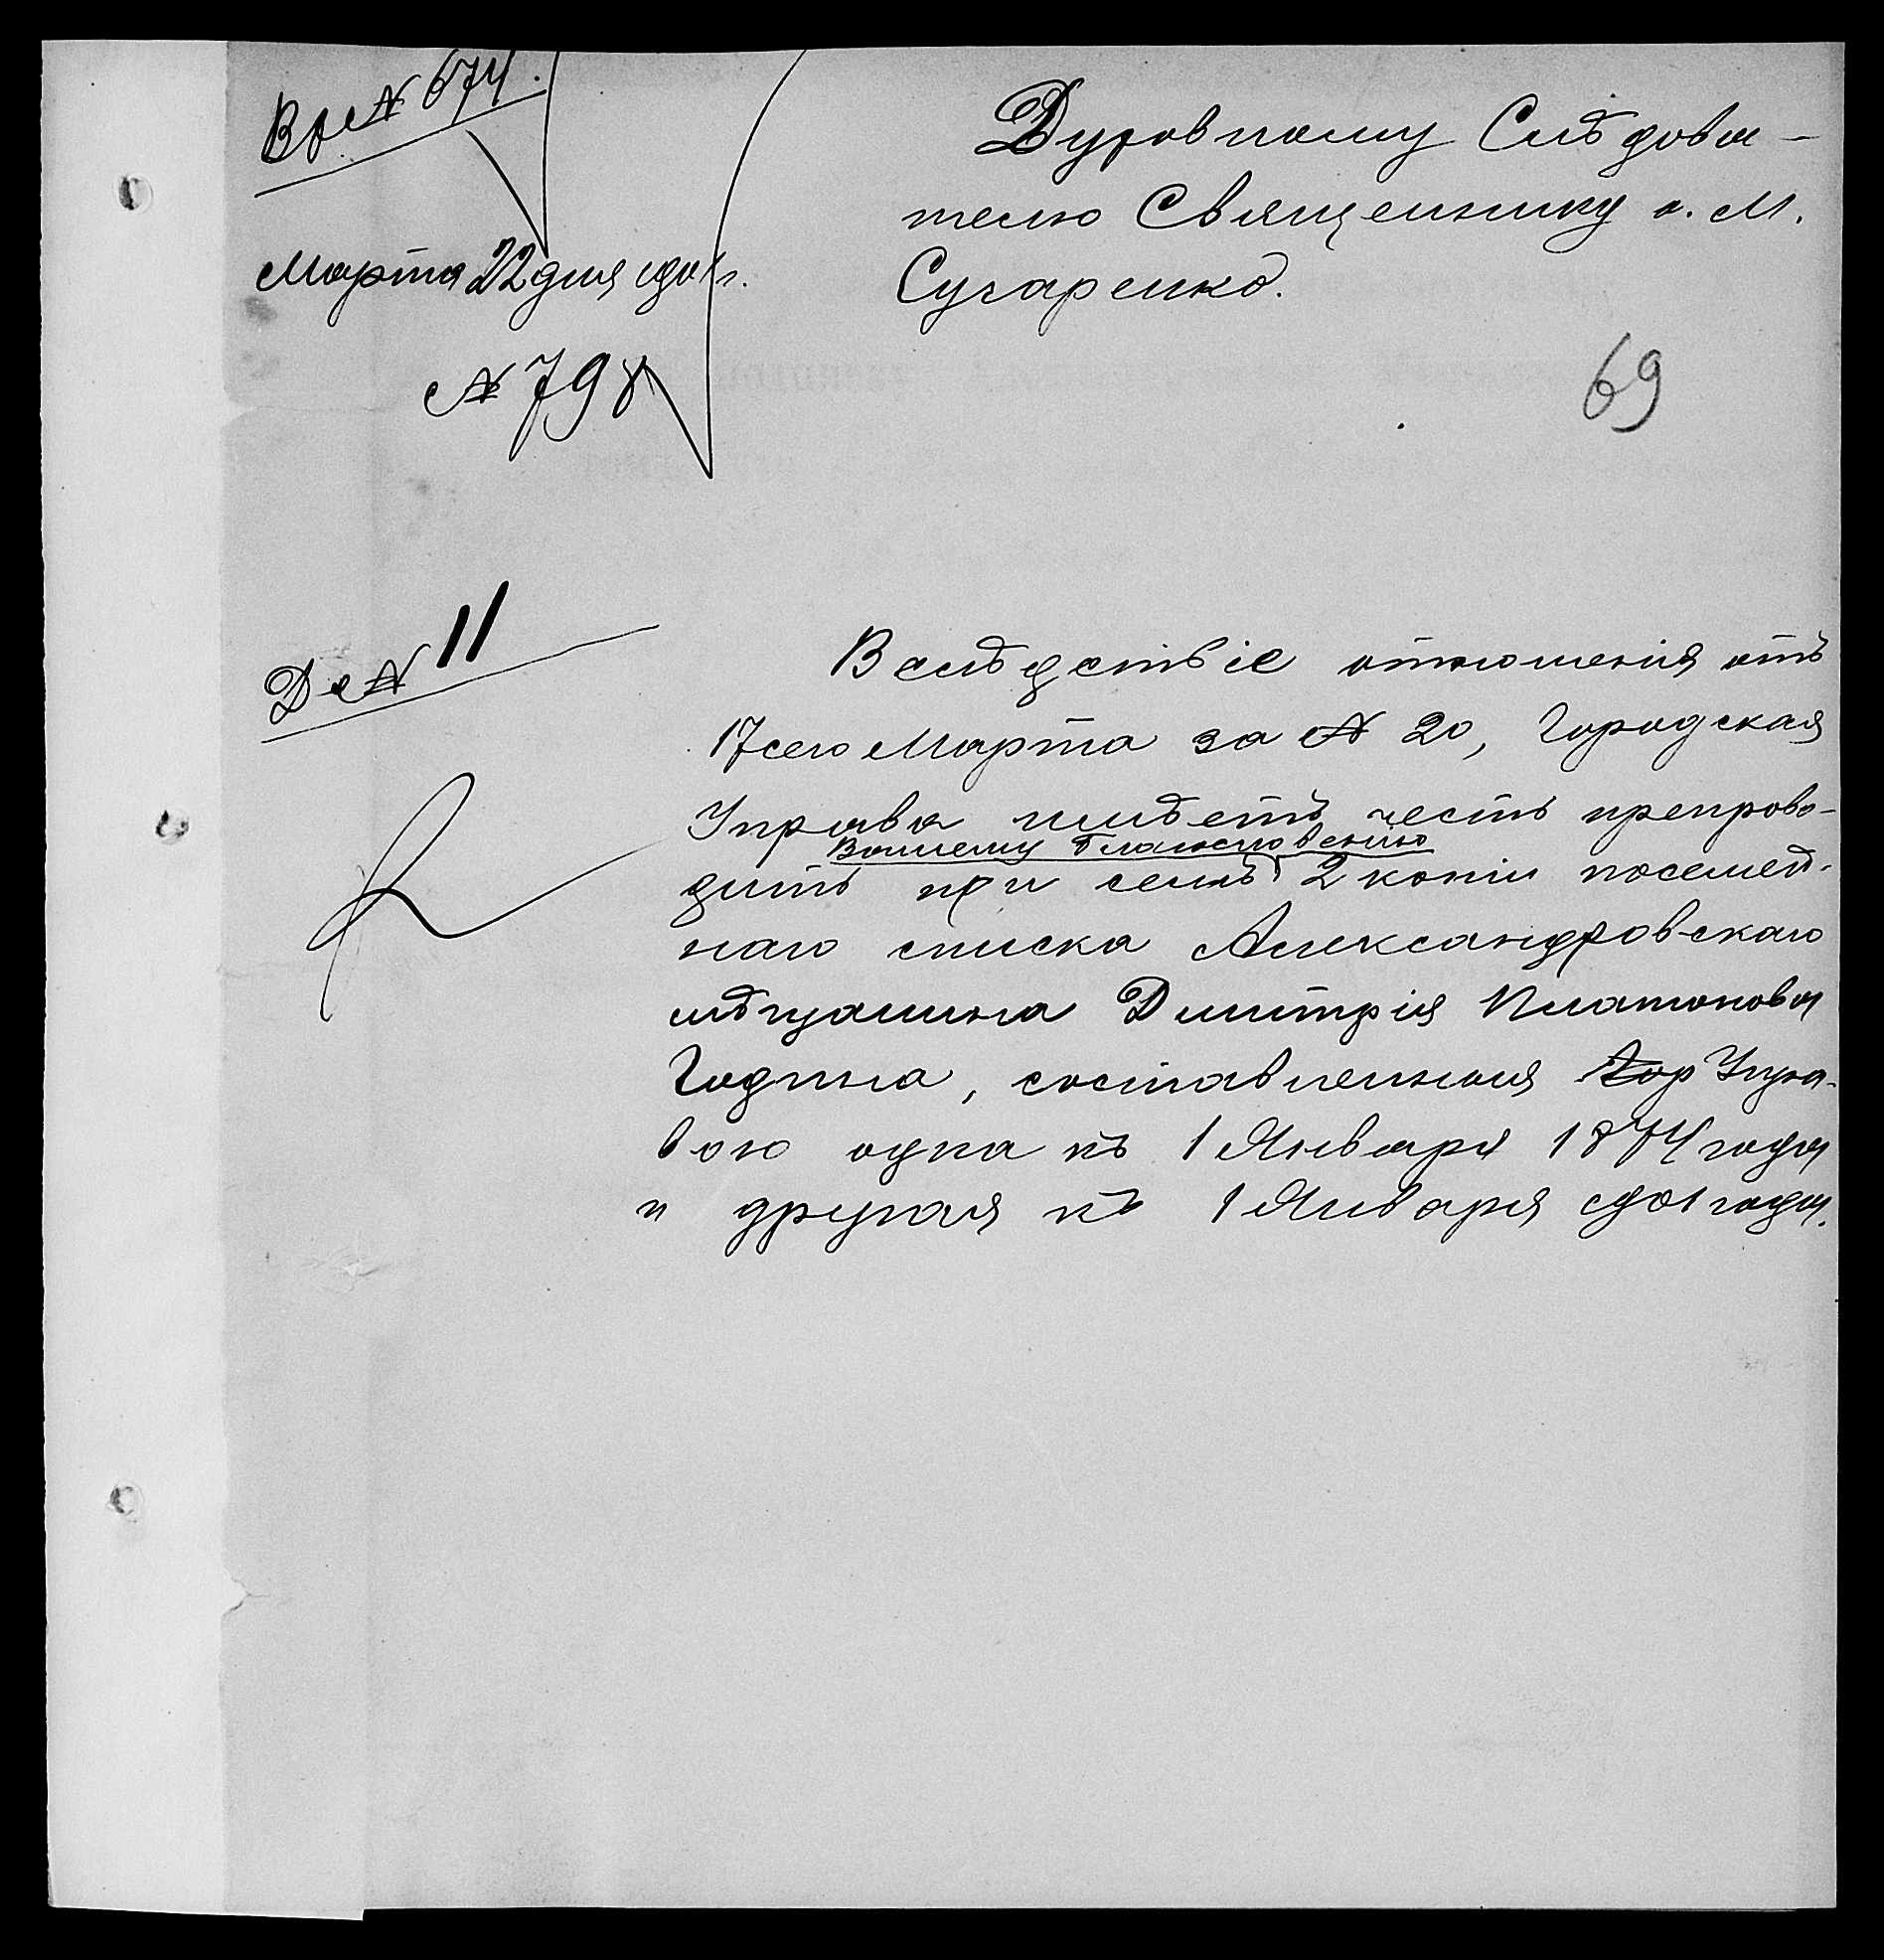 Вх № 674.
Марта 22 дня 1901 г.
№ 798
Духовному Слѣдова-
телю Священнику о. М.
Сухаренко.
69
Д № 11
Вслѣдствіе отношенія отъ
17 сего Марта за № 20, Городская
Управа имѣетъ честь препрово-
Вашему Благословенію
дить при семъ 2 копіи посемей-
наго списка Александровскаго
мѣщанина Димитрія Платонова
Година, составленныя Гор Упра-
вою одна къ 1 Января 1874 года
и другая къ 1 Января 1901 года.